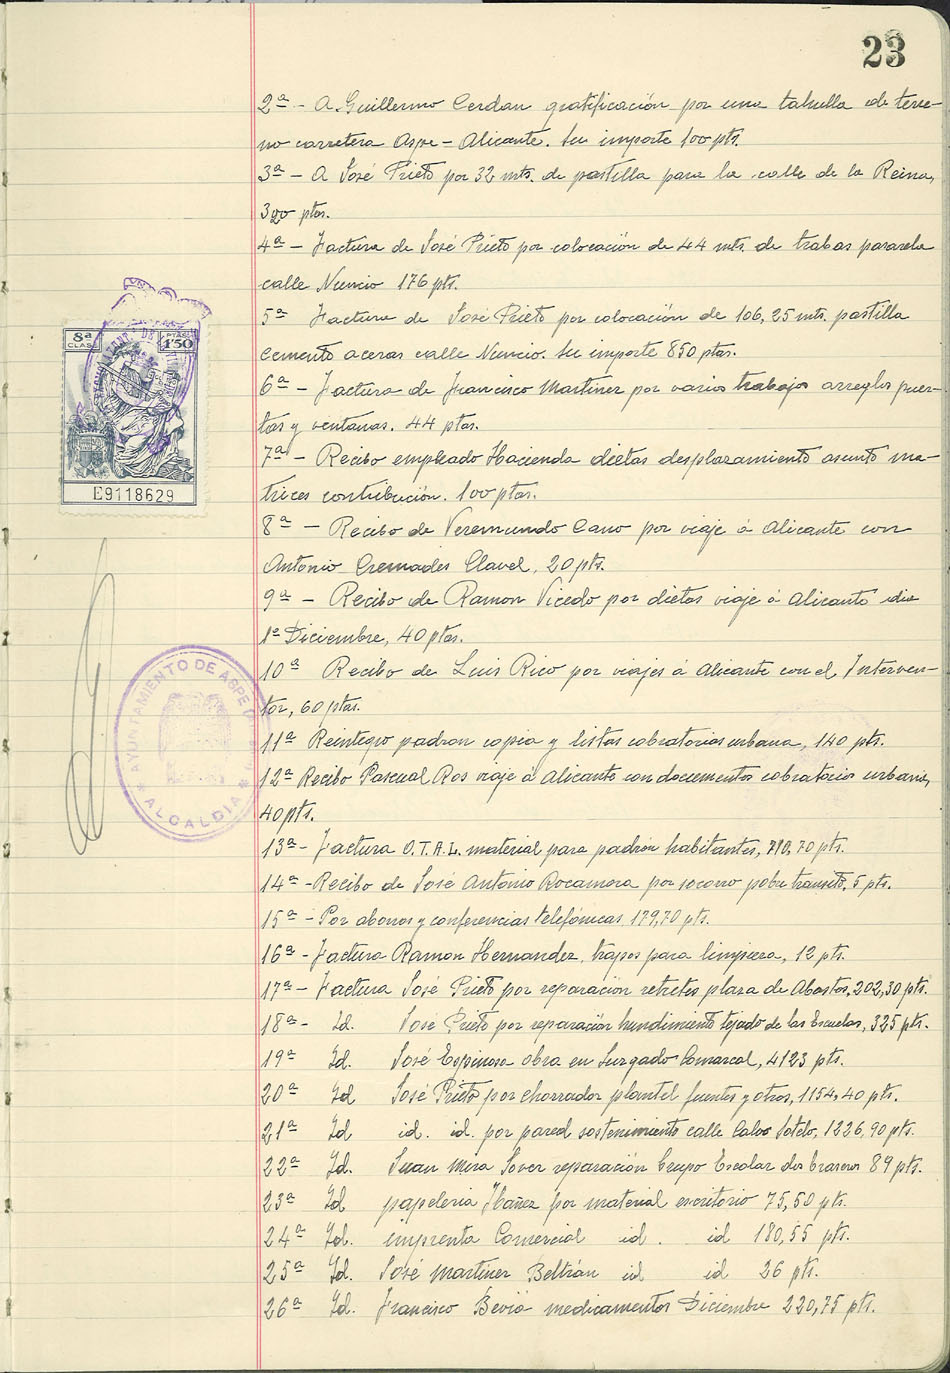 23
2ª - A Guillermo Cerdan gratificación por una tahulla de terre-
no carretera Aspe - Alicante. Su importe 100 pts.
3ª - A José Prieto por 32 mts. de pastilla para la calle de la Reina,
320 ptas.
4ª - Factura de José Prieto por colocación de 44 mts. de trabas pararela
calle Nuncio 176 pts.
5ª Factura de José Prieto por colocación de 106,25 mts. pastilla
cemento aceras calle Nuncio. Su importe 850 ptas.
6ª - Factura de Francisco Martinez por varios trabajos arreglos puer-
tas y ventanas. 44 ptas.
7ª - Recibo empleado Hacienda dietas desplazamiento asunto ma-
trices contribución. 100 ptas.
8ª - Recibo de Veremundo Cano por viaje á Alicante con
Antonio Cremades Clavel, 20 pts.
9ª - Recibo de Ramon Vicedo por dietas viaje á Alicante dia
1º Diciembre, 40 ptas.
10ª Recibo de Luis Rico por viajes á Alicante con el Interven-
tor, 60 ptas.
11ª Reintegro padron copia y listas cobratorias urbana, 140 pts.
12ª Recibo Pascual Ros viaje á Alicante con documentos cobratorios urbana,
40 pts.
13ª - Factura O.T.A.L. material para padrón habitantes, 710,70 pts.
14ª - Recibo de José Antonio Rocamora por socorro pobre transito, 5 pts.
15ª - Por abonos y conferencias telefónicas 179,70 pts.
16ª - Factura Ramon Hernandez, trapos para limpieza, 12 pts.
17ª - Factura José Prieto por reparación retretes plaza de Abastos, 202,30 pts.
18ª - Id. José Prieto por reparación hundimiento tejado de las Escuelas, 325 pts.
19ª Id. José Espinosa obra en Juzgado Comarcal, 4123 pts.
20ª Id José Prieto por chorrador plantel fuentes y otros, 1154,40 pts.
21ª Id id. id. por pared sostenimiento calle Calvo Sotelo, 1226,90 pts.
22ª Id. Juan Mira Jover reparación Grupo Escolar dos braseros 89 pts.
23ª Id papeleria Ibañez por material escritorio 75,50 pts.
24ª Id. imprenta Comercial id. id 180,55 pts.
25ª Id. José Martinez Beltrán id id 26 pts.
26ª Id. Francisco Beviá medicamentos Diciembre 220,75 pts.
8ª
CLASE
PTAS
1'50
E9118629
AYUNTAMIENTO DE ASPE
* ALCALDIA *